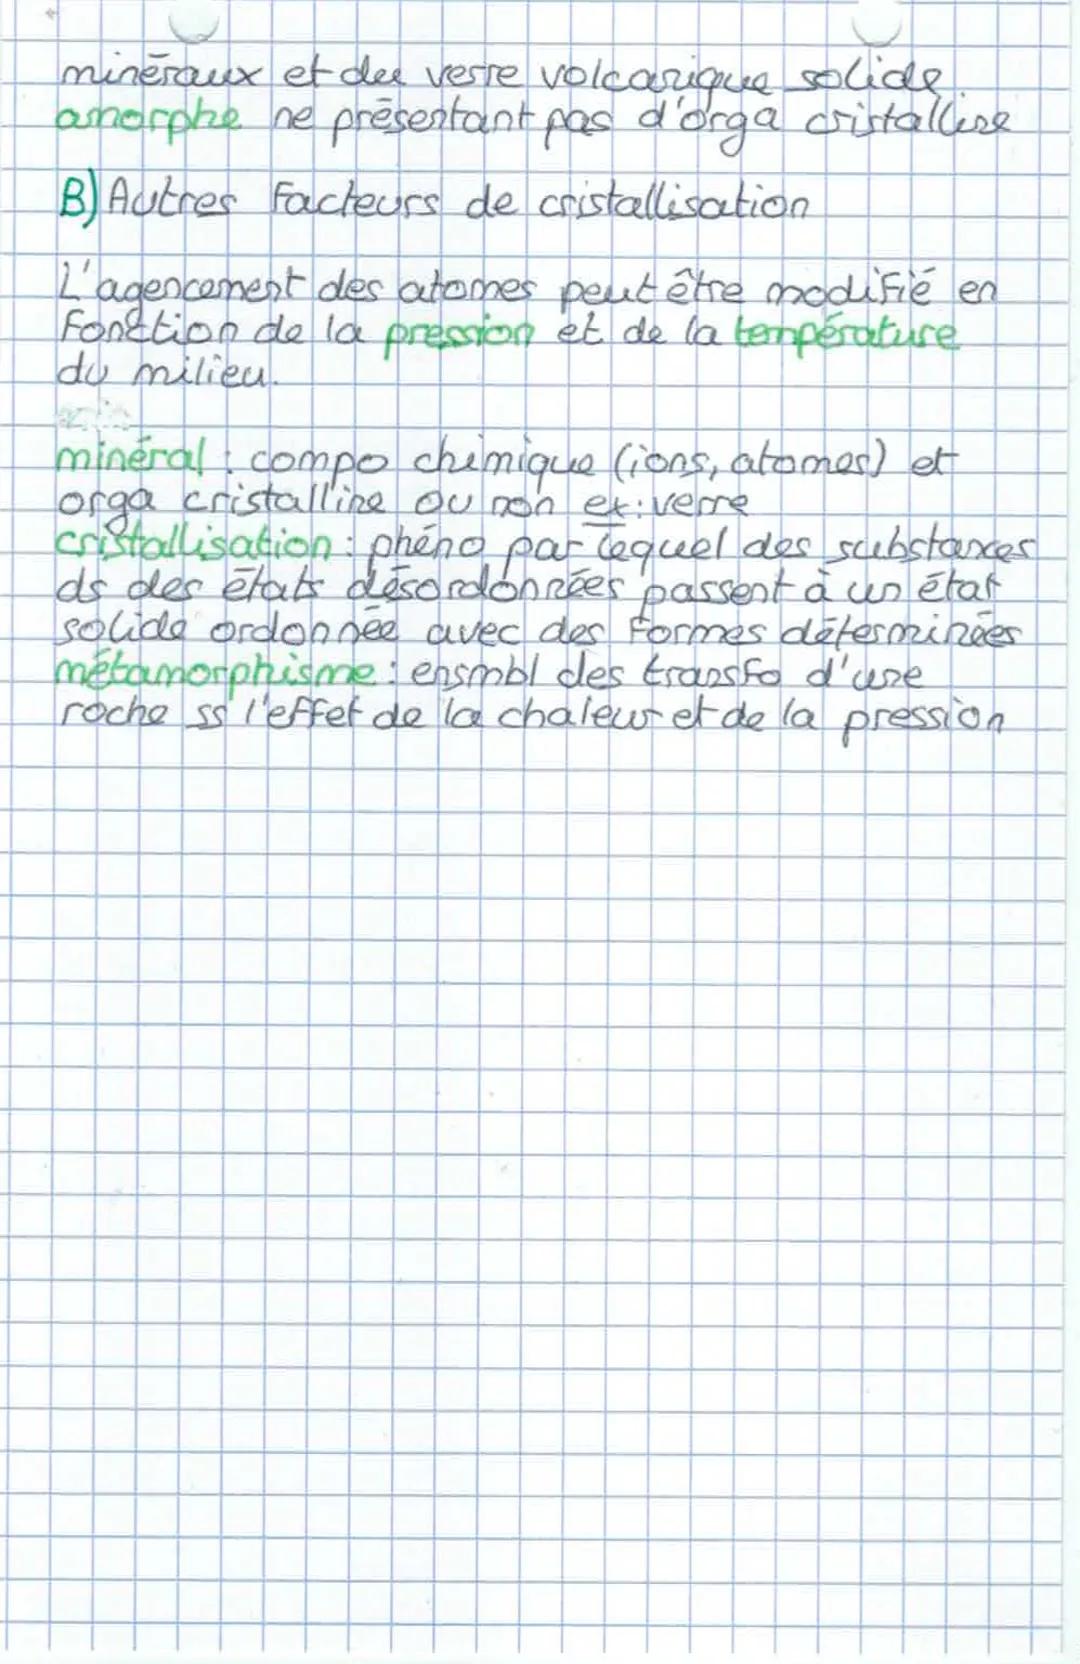 minéraux et du verre volcanique solide
amorphe ne présentant pas d'orga cristalline
B) Autres facteurs de cristallisation
L'agencement des atomes peut être modifié en
fonction de la pression et de la température
du milieu.
minéral : compo chimique (ions, atomes) et
orga cristalline ou non ex: verre
cristallisation : phéno par lequel des substances
ds des états désordonnées passent à un état
solide ordonnée avec des formes déterminées
métamorphisme : ensmbl des transfo d'une
roche ss l'effet de la chaleur et de la pression